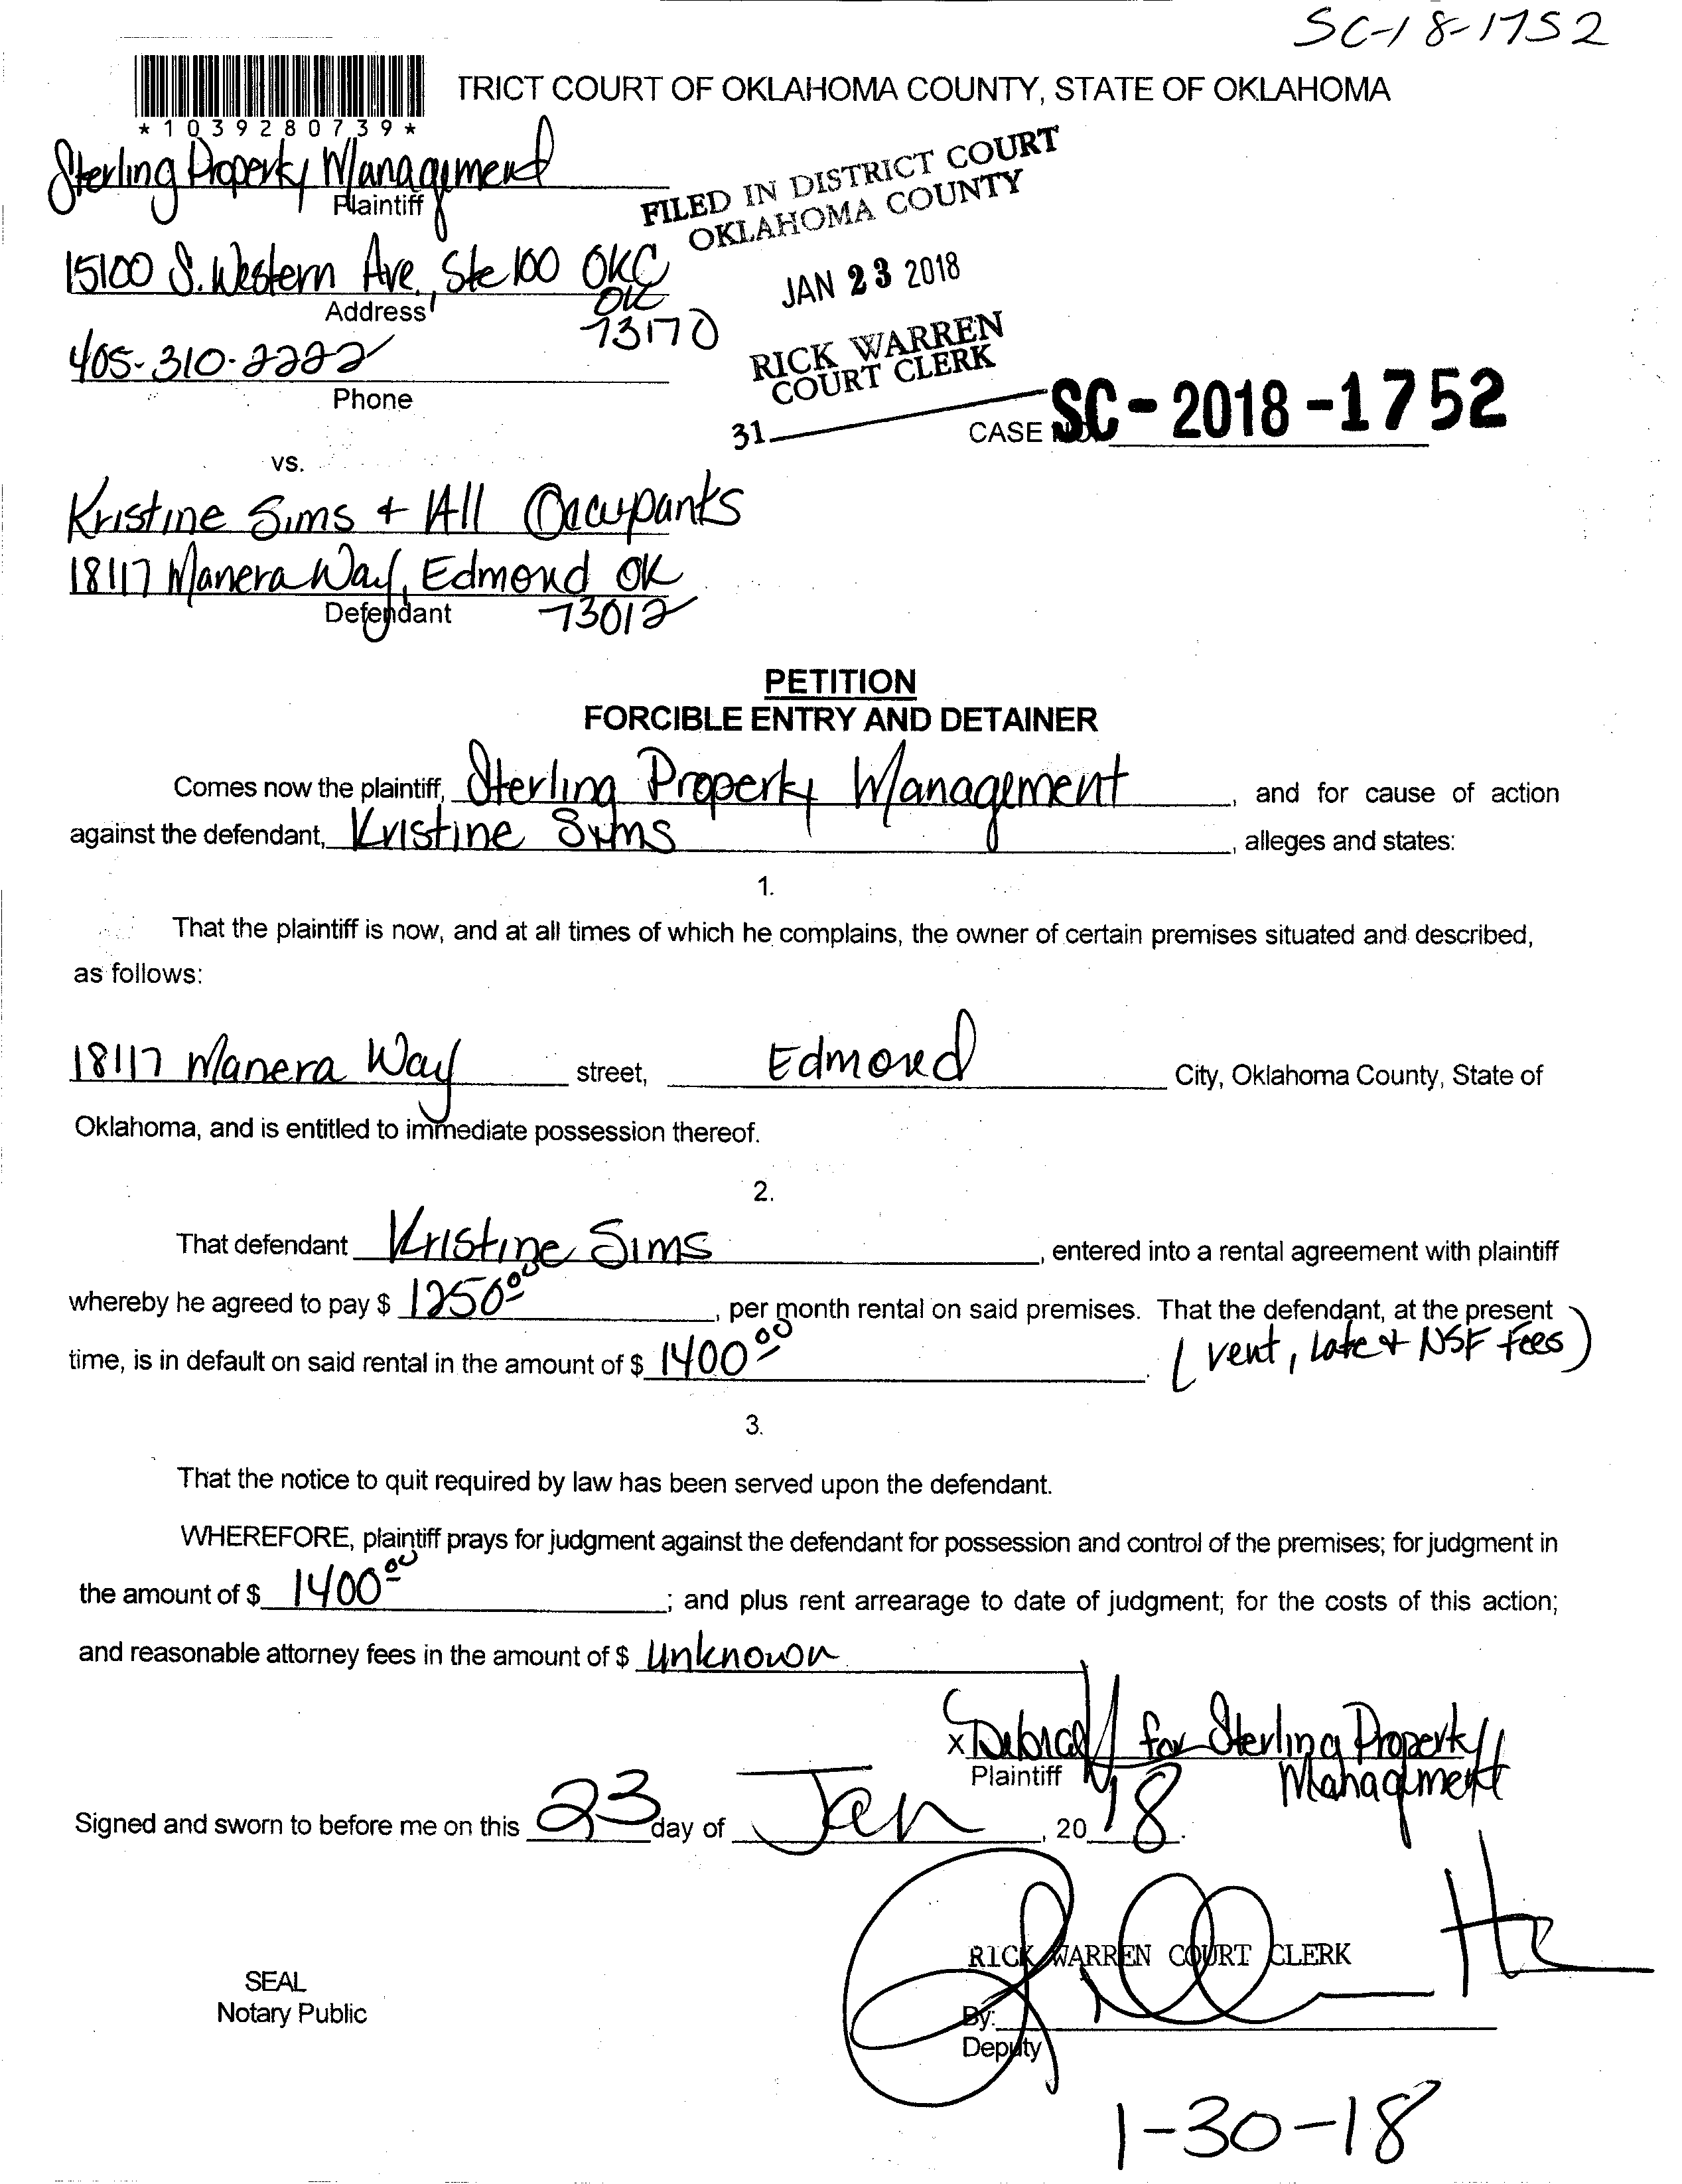 SC-18-1752
TRICT COURT OF OKLAHOMA COUNTY, STATE OF OKLAHOMA
*1039280739*
Sterling Property Management
Plaintiff
FILED IN DISTRICT COURT
OKLAHOMA COUNTY
15100 S. Western Ave, Ste 100 OKC
OK
73170
Address
JAN 23 2018
405-310-2222
Phone
RICK WARREN
COURT CLERK
31
CASE NO. SC-2018-1752
vs.
Kristine Sims + All Occupants
18117 Manera Way, Edmond OK
73012
Defendant
PETITION
FORCIBLE ENTRY AND DETAINER
Comes now the plaintiff, Sterling Property Management, and for cause of action
against the defendant, Kristine Sims, alleges and states:
1.
That the plaintiff is now, and at all times of which he complains, the owner of certain premises situated and described,
as follows:
18117 Manera Way street, Edmond City, Oklahoma County, State of
Oklahoma, and is entitled to immediate possession thereof.
2.
That defendant Kristine Sims, entered into a rental agreement with plaintiff
whereby he agreed to pay $ 1250 00, per month rental on said premises. That the defendant, at the present
time, is in default on said rental in the amount of $ 1400 00. (rent, late + NSF fees)
3.
That the notice to quit required by law has been served upon the defendant.
WHEREFORE, plaintiff prays for judgment against the defendant for possession and control of the premises; for judgment in
the amount of $ 1400 00; and plus rent arrearage to date of judgment; for the costs of this action;
and reasonable attorney fees in the amount of $ Unknown
x for Sterling Property
Management
Plaintiff
Signed and sworn to before me on this 23 day of Jan, 20 18.
RICK WARREN COURT CLERK
SEAL
Notary Public
By:
Deputy
1-30-18